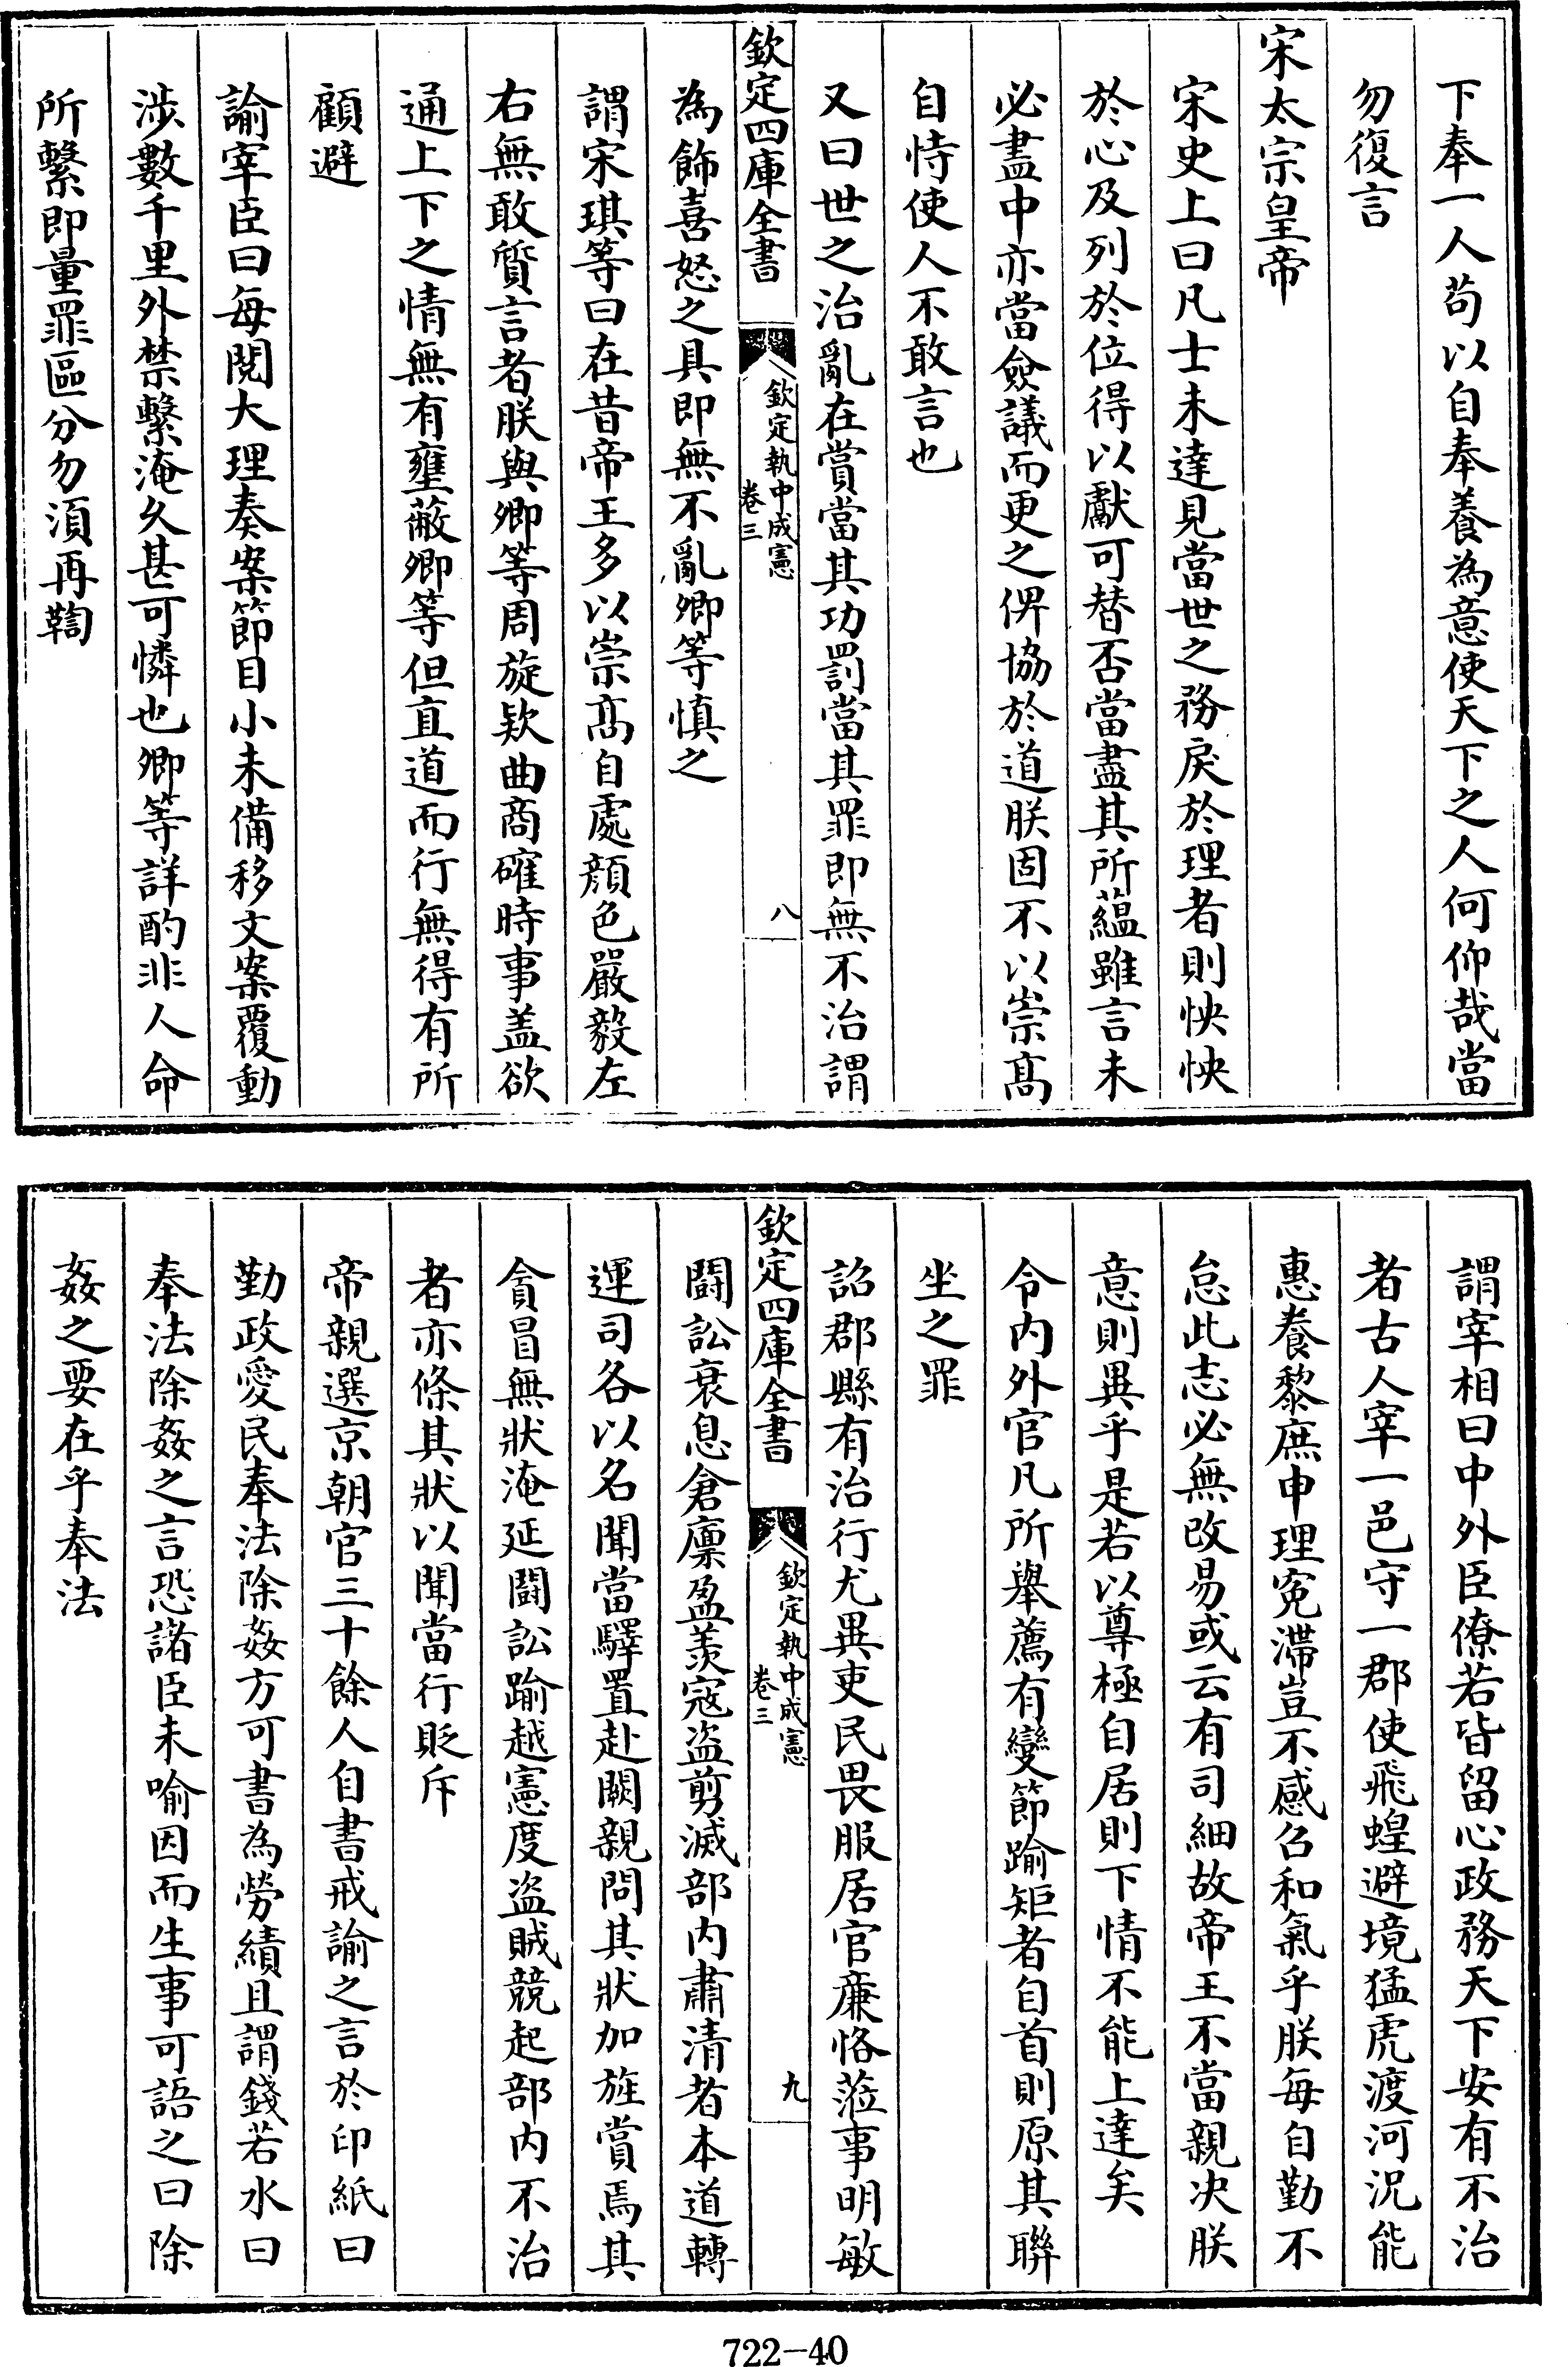 下奉一人苟以自奉養為意使天下之人何仰哉當
勿復言
宋太宗皇帝
宋史上曰凡士未達見當世之務戾於理者則怏怏
於心及列於位得以獻可替否當盡其所蘊雖言未
必盡中亦當僉議而更之俾協於道朕固不以崇髙
自恃使人不敢言也
又曰世之治亂在賞當其功罰當其罪即無不治謂
欽定四庫全書
欽定執中成憲
卷三
八
為飾喜怒之具即無不亂卿等慎之
謂宋琪等曰在昔帝王多以崇髙自處顔色嚴毅左
右無敢質言者朕與卿等周旋欵曲商確時事盖欲
通上下之情無有壅蔽卿等但直道而行無得有所
顧避
諭宰臣曰每閱大理奏案節目小未備移文案覆動
涉數千里外禁繫淹久甚可憐也卿等詳酌非人命
所繫即量罪區分勿須再鞫
謂宰相曰中外臣僚若皆留心政務天下安有不治
者古人宰一邑守一郡使飛蝗避境猛虎渡河況能
惠養黎庶申理寃滯豈不感召和氣乎朕每自勤不
怠此志必無改易或云有司細故帝王不當親决朕
意則異乎是若以尊極自居則下情不能上達矣
令内外官凡所舉薦有變節踰矩者自首則原其聯
坐之罪
詔郡縣有治行尤異吏民畏服居官廉恪蒞事明敏
欽定四庫全書
欽定執中成憲
卷三
九
鬭訟衰息倉廩盈羡寇盗剪滅部内肅清者本道轉
運司各以名聞當驛置赴闕親問其狀加旌賞焉其
貪冒無狀淹延鬭訟踰越憲度盗賊競起部内不治
者亦條其狀以聞當行貶斥
帝親選京朝官三十餘人自書戒諭之言於印紙曰
勤政愛民奉法除姦方可書為勞績且謂錢若水曰
奉法除姦之言恐諸臣未喻因而生事可語之曰除
姦之要在乎奉法
722-40